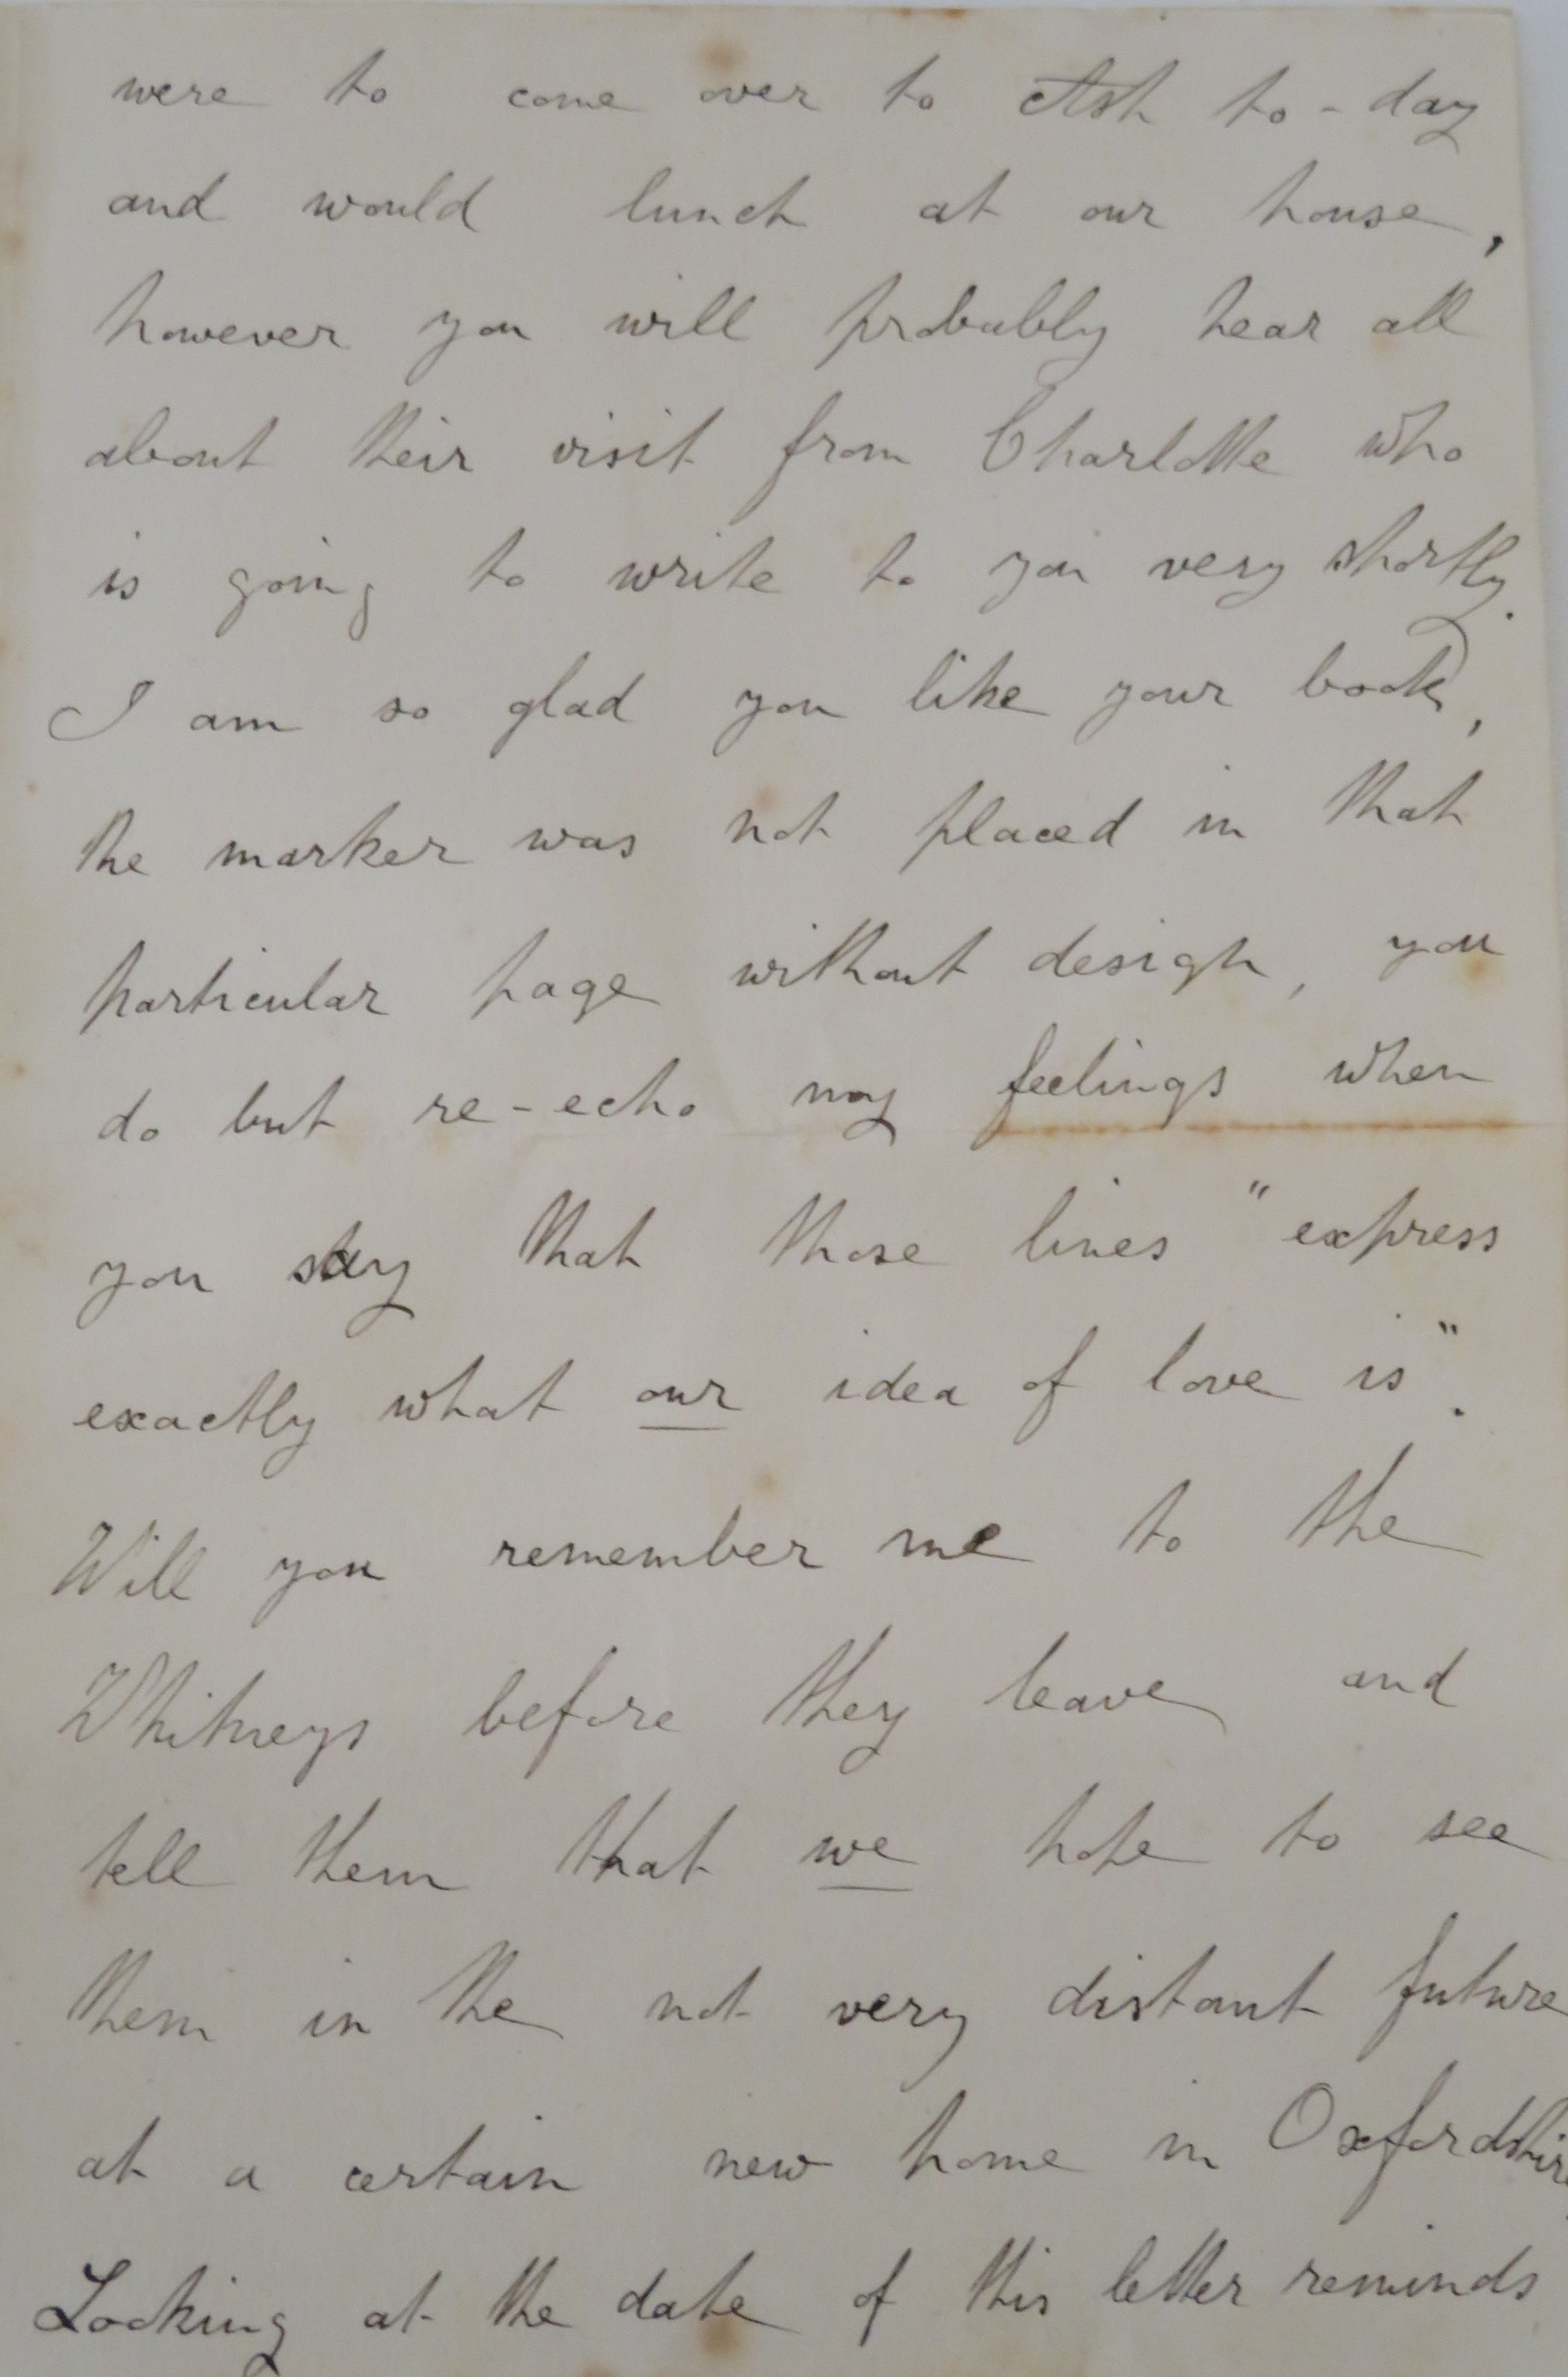 were to come over to Ash to-day
and would lunch at our house,
however you will probably hear all
about their visit from Charlotte who
is going to write to you very shortly.
I am so glad you like your book,
the marker was not placed in that
particular page without design, you
do but re-echo my feelings when
you say that those lines "express
exactly what our idea of love is".
Will you remember me to the
Whitneys before they leave and
tell them that we hope to see
them in the not very distant future
at a certain new home in Oxfordshire
Looking at the date of this letter reminds